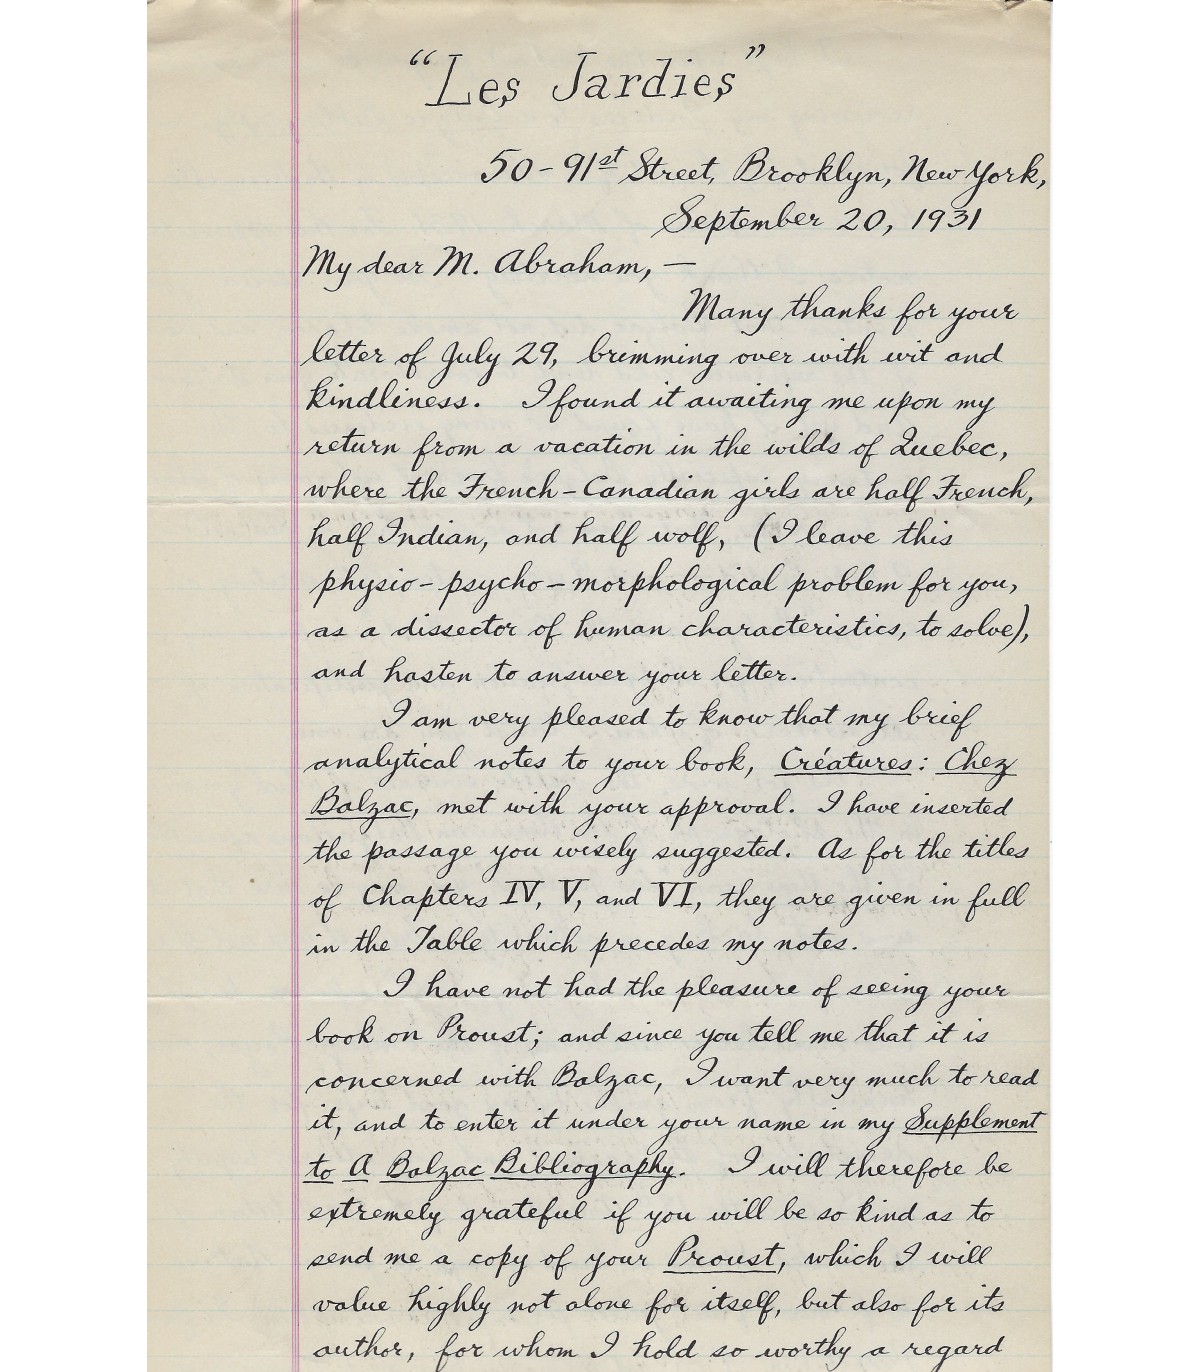 “Les Jardies”
50-91st Street, Brooklyn, New York,
September 20, 1931
My dear M. Abraham, —
Many thanks for your
letter of July 29, brimming over with wit and
kindliness. I found it awaiting me upon my
return from a vacation in the wilds of Quebec,
where the French-Canadian girls are half French,
half Indian, and half wolf, (I leave this
physio-psycho-morphological problem for you,
as a dissector of human characteristics, to solve),
and hasten to answer your letter.
I am very pleased to know that my brief
analytical notes to your book, Créatures: Chez
Balzac, met with your approval. I have inserted
the passage you wisely suggested. As for the titles
of Chapters IV, V, and VI, they are given in full
in the Table which precedes my notes.
I have not had the pleasure of seeing your
book on Proust; and since you tell me that it is
concerned with Balzac, I want very much to read
it, and to enter it under your name in my Supplement
to A Balzac Bibliography. I will therefore be
extremely grateful if you will be so kind as to
send me a copy of your Proust, which I will
value highly not alone for itself, but also for its
author, for whom I hold so worthy a regard